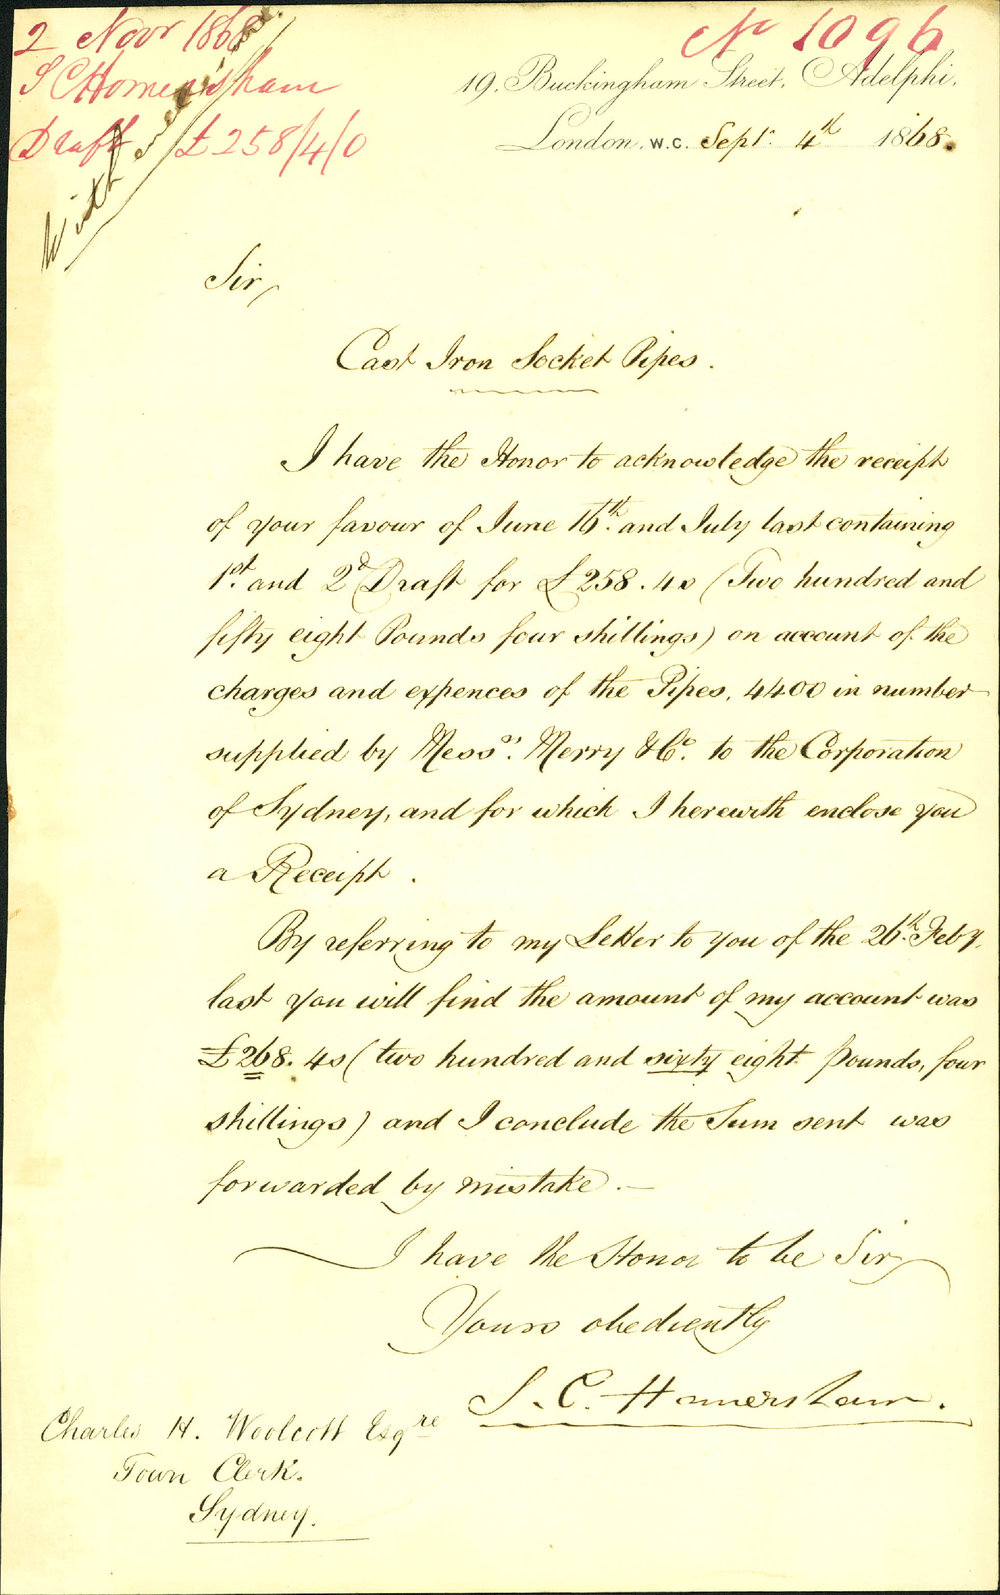 2 Novr 1868
No 1096
S C Homersham
Draft £258/4/0
With
19, Buckingham Street, Adelphi,
London, W.C. Septr. 4th 1868.
Sir,
Cast Iron Socket Pipes.
I have the Honor to acknowledge the receipt
of your favour of June 16th. and July last containing
1st. and 2d Draft for £258.4s (Two hundred and
fifty eight Pounds four shillings) on account of the
charges and expences of the Pipes, 4400 in number
supplied by Messrs. Merry & Co. to the Corporation
of Sydney, and for which I herewith enclose you
a Receipt.
By referring to my Letter to you of the 26th. Feby.
last you will find the amount of my account was
£268.4s (two hundred and sixty eight Pounds, four
shillings) and I conclude the Sum sent was
forwarded by mistake.—
I have the Honor to be Sir,
Yours obediently
S. C. Homersham.
Charles H. Woolcott Esqre
Town Clerk.
Sydney.